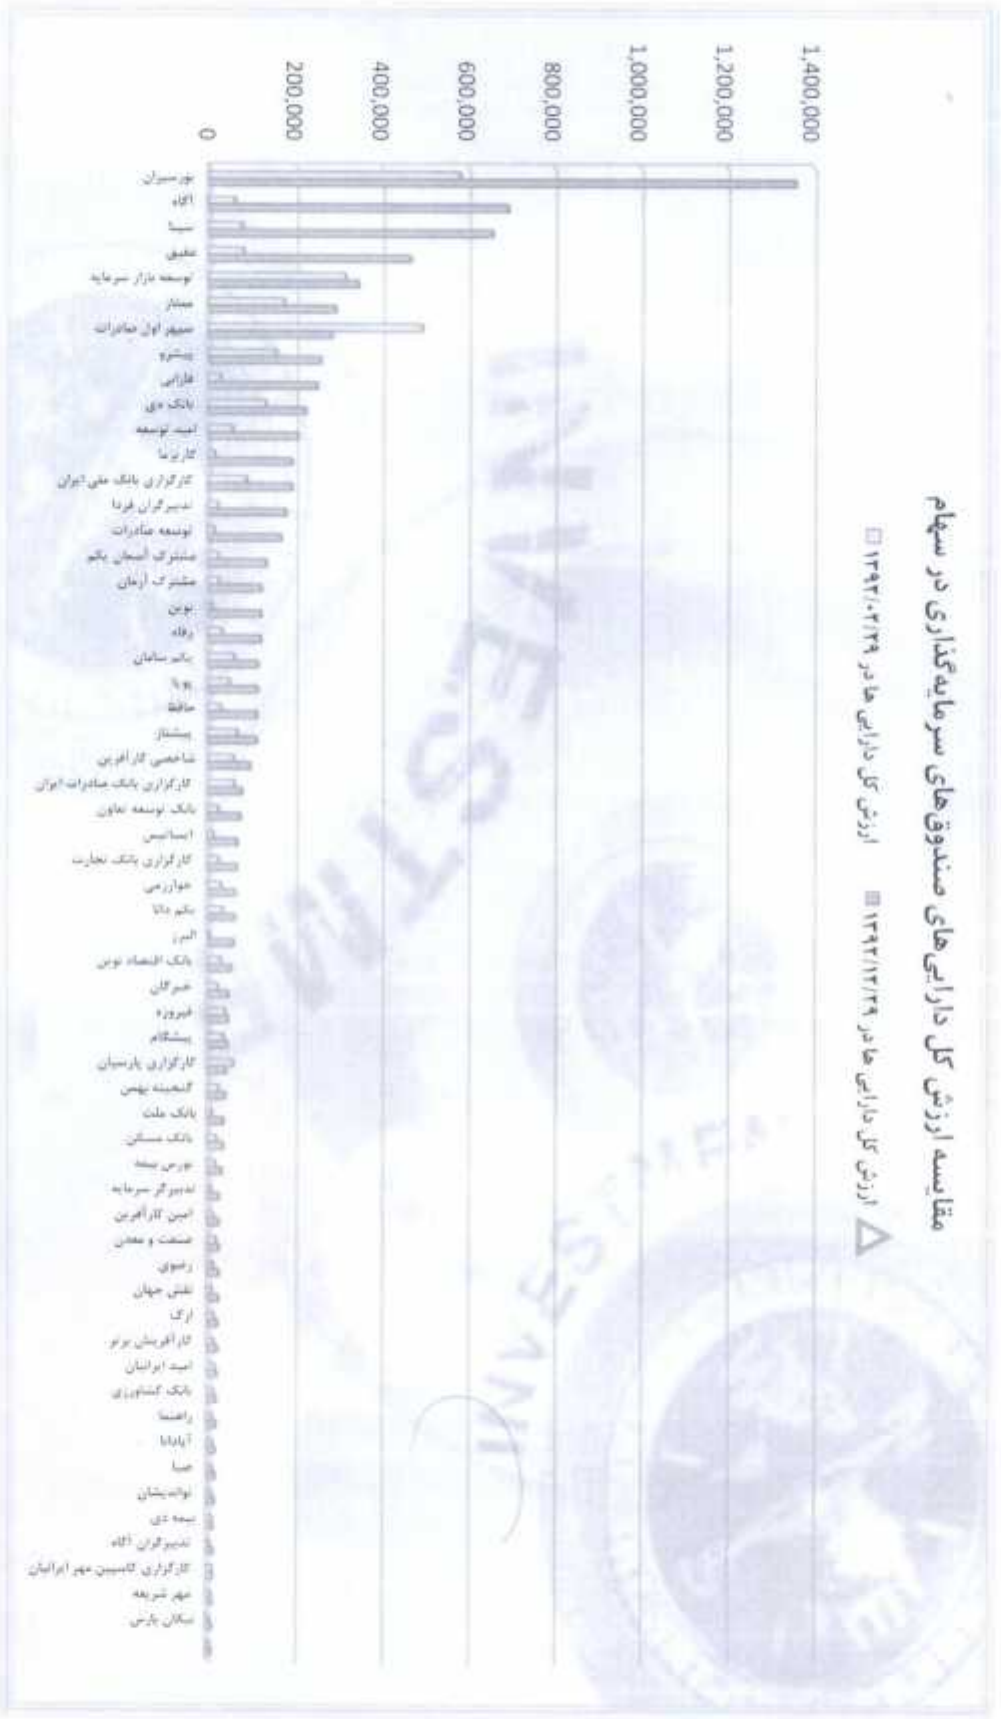 مقایسه ارزش کل دارایی‌های صندوق‌های سرمایه‌گذاری در سهام
ارزش کل دارایی ها در ۱۳۹۲/۱۲/۲۹
1,400,000
1,200,000
1,000,000
800,000
600,000
400,000
200,000
0
آگاه
سینا
عقیق
توسعه بازار سرمایه
ممتاز
سپهر اول صادرات
پیشرو
فارابی
بانک دی
امید توسعه
کارگزاری بانک ملی ایران
تدبیرگران فردا
توسعه صادرات
مشترک آسمان یکم
مشترک آرمان
نوین
رفاه
یکم سامان
پویا
حافظ
پیشتاز
شاخصی کارآفرین
کارگزاری بانک صادرات ایران
بانک توسعه تعاون
ایساتیس
کارگزاری بانک تجارت
خوارزمی
یکم دانا
البرز
بانک اقتصاد نوین
خبرگان
فیروزه
پیشگام
کارگزاری پارسیان
گنجینه بهمن
بانک ملت
بانک مسکن
بورس بیمه
تدبیرگر سرمایه
امین کارآفرین
صنعت و معدن
رضوی
نقش جهان
ارک
کارآفرینان برتر
امید ایرانیان
بانک کشاورزی
راهنما
آپادانا
صبا
نواندیشان
بیمه دی
تدبیرگران آگاه
کارگزاری کاسپین مهر ایرانیان
مهر شریعه
نیکان پارس
INVESTM
INVES